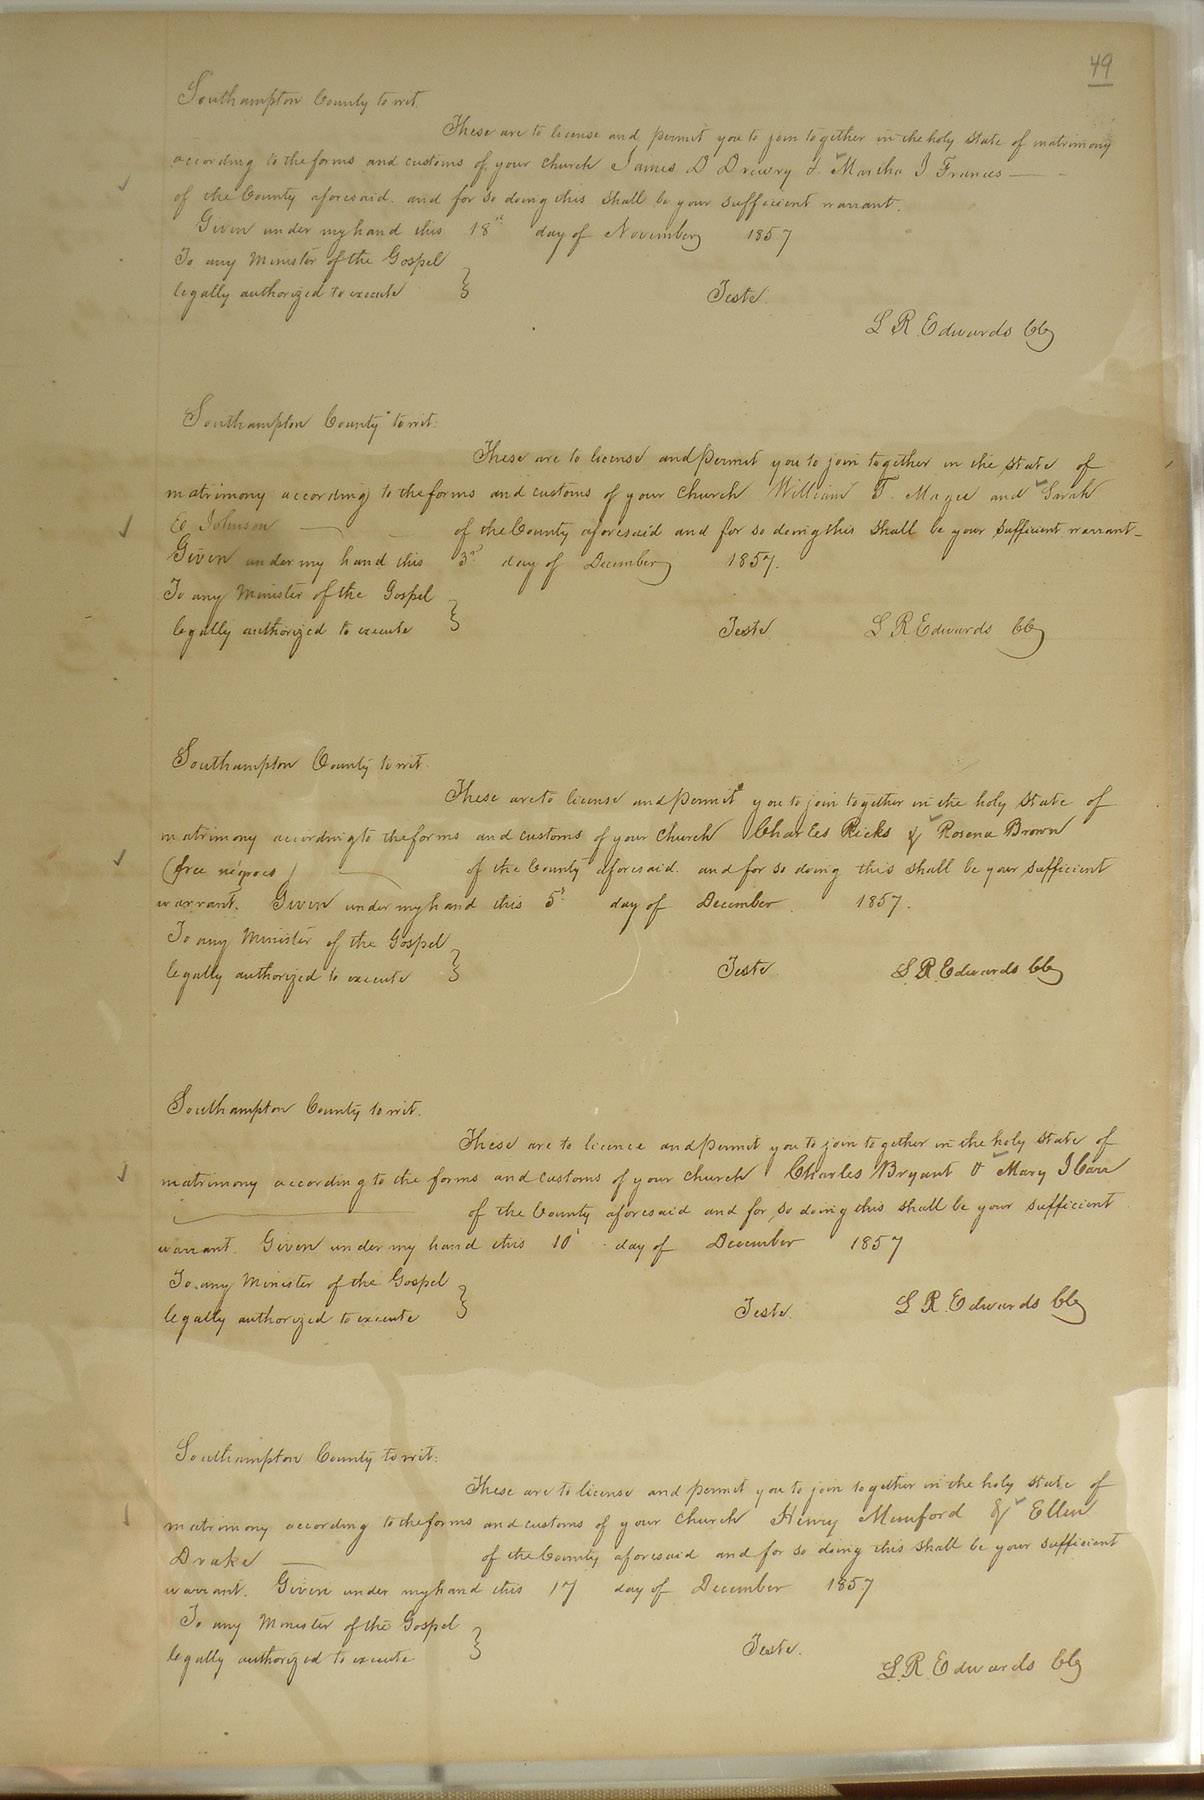 49
Southampton County to wit.
These are to license and permit you to join together in the holy state of matrimony
according to the forms and customs of your church James D Drewry & Martha J Frances
of the County aforesaid. and for so doing this shall be your sufficient warrant.
Given under my hand this 18th day of November 1857
To any Minister of the Gospel
legally authorized to execute } Teste.
L R. Edwards Clk
Southampton County to wit:
These are to license and permit you to join together in the state of
matrimony according to the forms and customs of your church William T. Magee and Sarah
E Johnson of the County aforesaid and for so doing this shall be your sufficient warrant
Given under my hand this 3rd day of December 1857.
To any Minister of the Gospel
legally authorized to execute } Teste L R Edwards Clk
Southampton County to wit.
These are to license and permit you to join together in the holy state of
matrimony according to the forms and customs of your church Charles Ricks & Rosena Brown
(free negroes) of the County aforesaid. and for so doing this shall be your sufficient
warrant. Given under my hand this 5th day of December 1857.
To any Minister of the Gospel
legally authorized to execute } Teste L. R. Edwards Clk
Southampton County to wit.
These are to licence and permit you to join together in the holy state of
matrimony according to the forms and customs of your church Charles Bryant & Mary J Carr
of the County aforesaid and for so doing this shall be your sufficient
warrant. Given under my hand this 10th day of December 1857
To any Minister of the Gospel
legally authorized to execute } Teste. L R. Edwards Clk
Southampton County to wit:
These are to license and permit you to join together in the holy state of
matrimony according to the forms and customs of your church Henry Mumford & Ellen
Drake of the County aforesaid and for so doing this shall be your sufficient
warrant. Given under my hand this 17 day of December 1857
To any Minister of the Gospel
legally authorized to execute } Teste.
L. R Edwards Clk